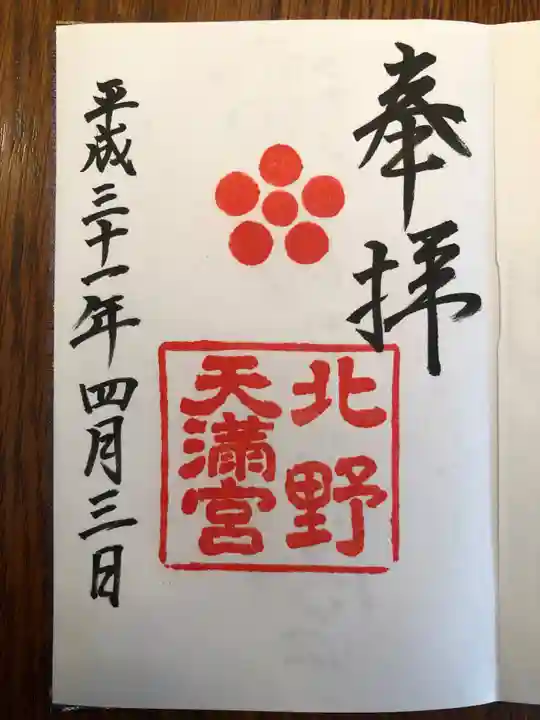 奉拝
北野
天満宮
平成三十一年四月三日